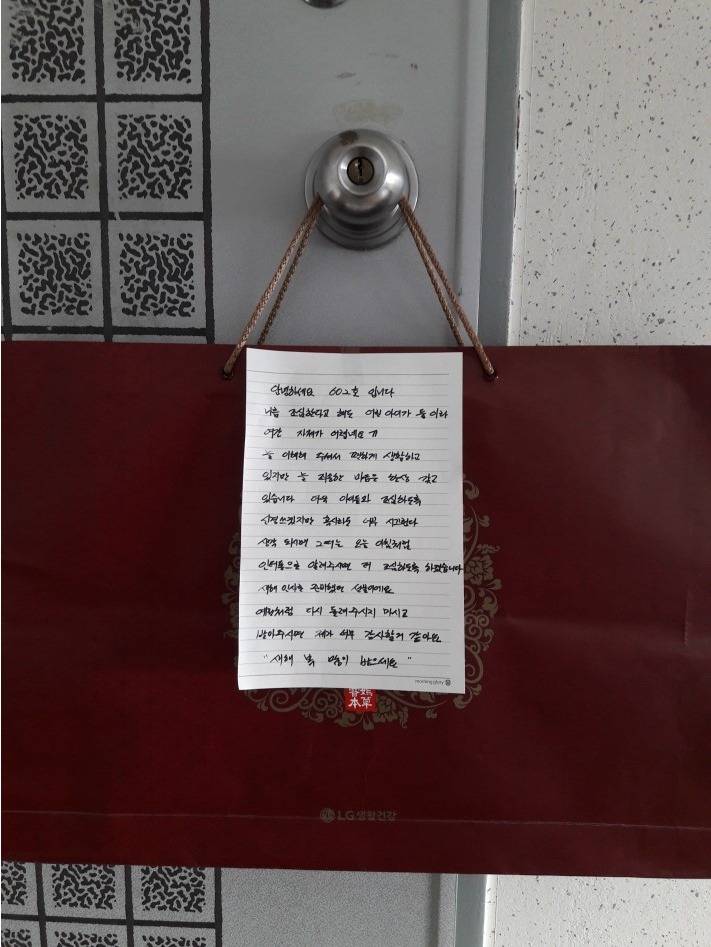 안녕하세요 602호 입니다
나름 조심한다고 해도 어린 아이가 둘이라
여간 자제가 어렵네요 ㅠ
늘 이해해 주셔서 편하게 생활하고
있지만 늘 죄송한 마음은 항상 갖고
있습니다 더욱 아이들과 조심하도록
신경쓰겠지만 혹시라도 너무 시끄럽다
생각 되시면 그때는 오늘 아침처럼
인터폰으로 알려주시면 더 조심하도록 하겠습니다
새해 인사로 준비했던 선물이에요
예전처럼 다시 돌려주시지 마시고
받아주시면 제가 너무 감사할거 같아요
"새해 복 많이 받으세요"
morning glory
本草
LG생활건강